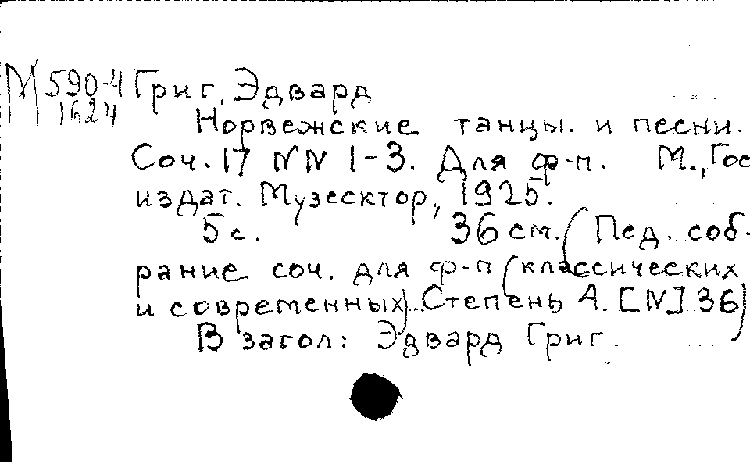 М 590-4 Григ, Эдвард
1624
Норвежские танцы. и песни.
Соч. 17 NN 1-3. Для ф-п. М., Гос
издат. Музсектор, 1925.
5 с. 36 см. (Пед. соб-
рание соч. для ф-п (классических
и современных)... Степень А. [N] 36)
В загол: Эдвард Григ.